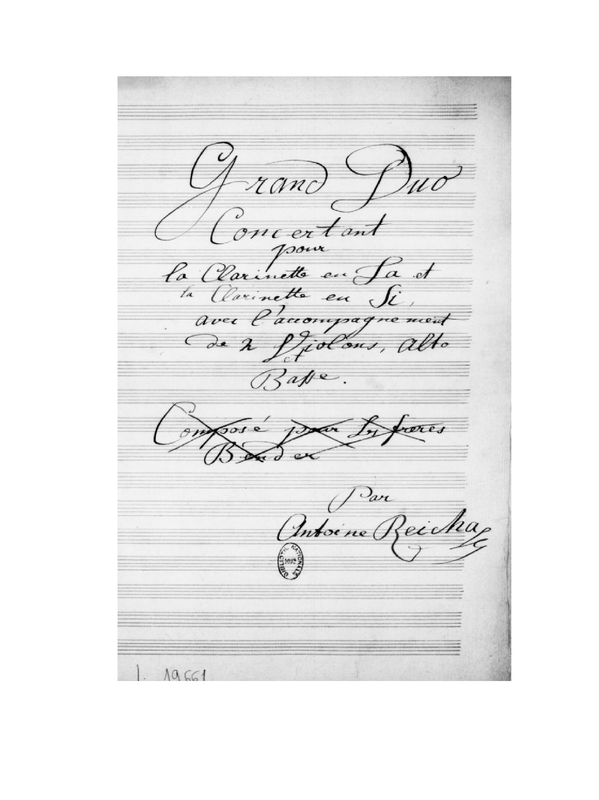 Grand Duo
Concertant
pour
la Clarinette en La et
la Clarinette en Si,
avec l'accompagnement
de 2 Violons, Alto
et
Basse.
Composé pour les freres
Bender
Par
Antoine Reicha